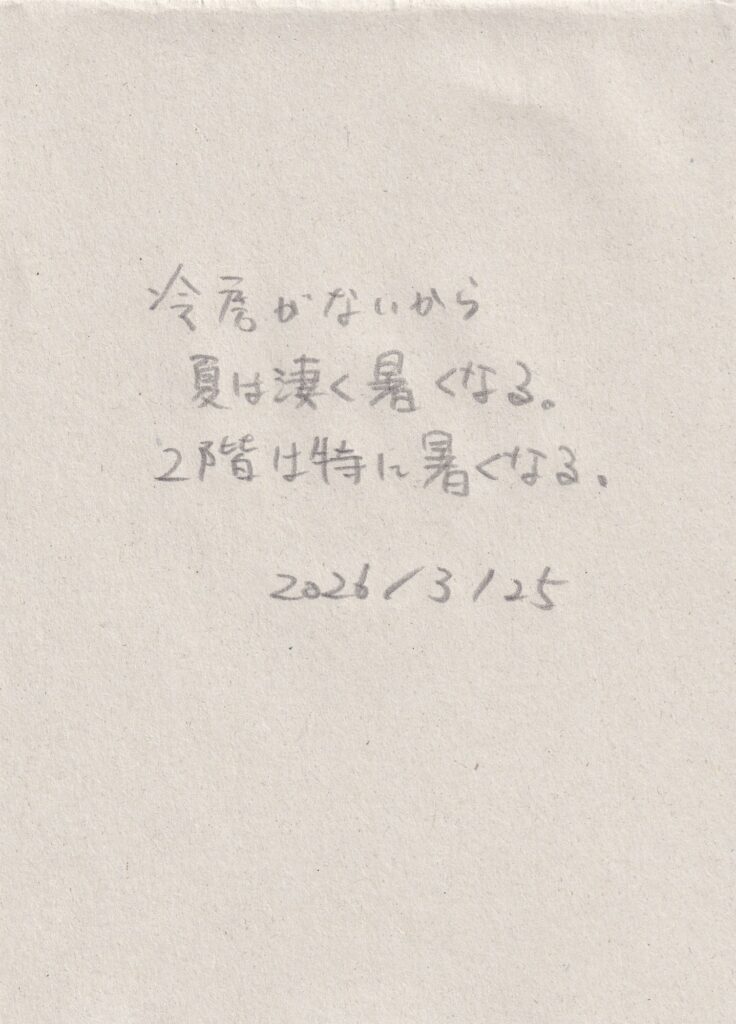 冷房がないから
夏は凄く暑くなる。
2階は特に暑くなる。
2026/3/25